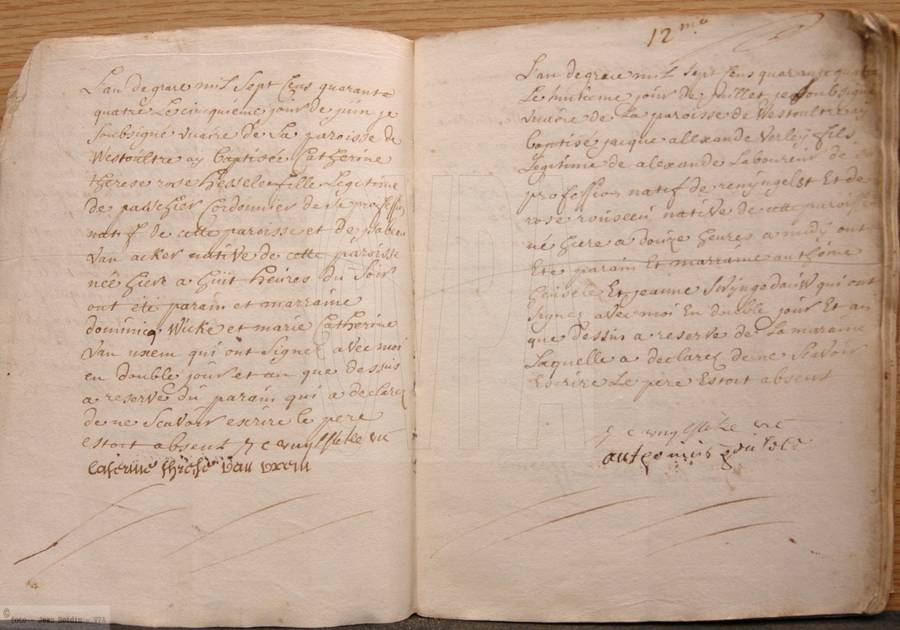 L'an de grace mil sept cens quarante
quatre Le cinquiéme jour de juin je
soubsigné vicaire de La paroisse de
Westoultre ay baptisée Catherine
therese rose hessele fille Legitime
de pa cordonnier de sa profession
natif de cette paroisse et de
van acker native de cette paroisse
née hier a huit heures du soir
ont été parain et marraine
dominicq Wicke et marie Catherine
van uxem qui ont signez avec moi
en double jour et an que dessus
a reserve du parain qui a declarez
de ne scavoir escrire le pere
estoit absent
van uxem
12me
L'an de grace mil sept cens quarante quatre
Le huitieme jour de juillet je soubsigné
vicaire de La paroisse de Westoultre ay
baptisé jacque allexandre verley fils
Legitime de alexandre Laboureur de
profession natif de renyngelst Et de
rose rousseu native de cette paroisse
né hiere a douze heures a midy ont
Eté parain Et marraine anthoine
hensele Et jeanne Swyngedauw qui ont
signez avec moi En double jour Et an
que dessus a reserve de La maraine
Laquelle a declarez de ne scavoir
Escrire Le pere Estoit absent